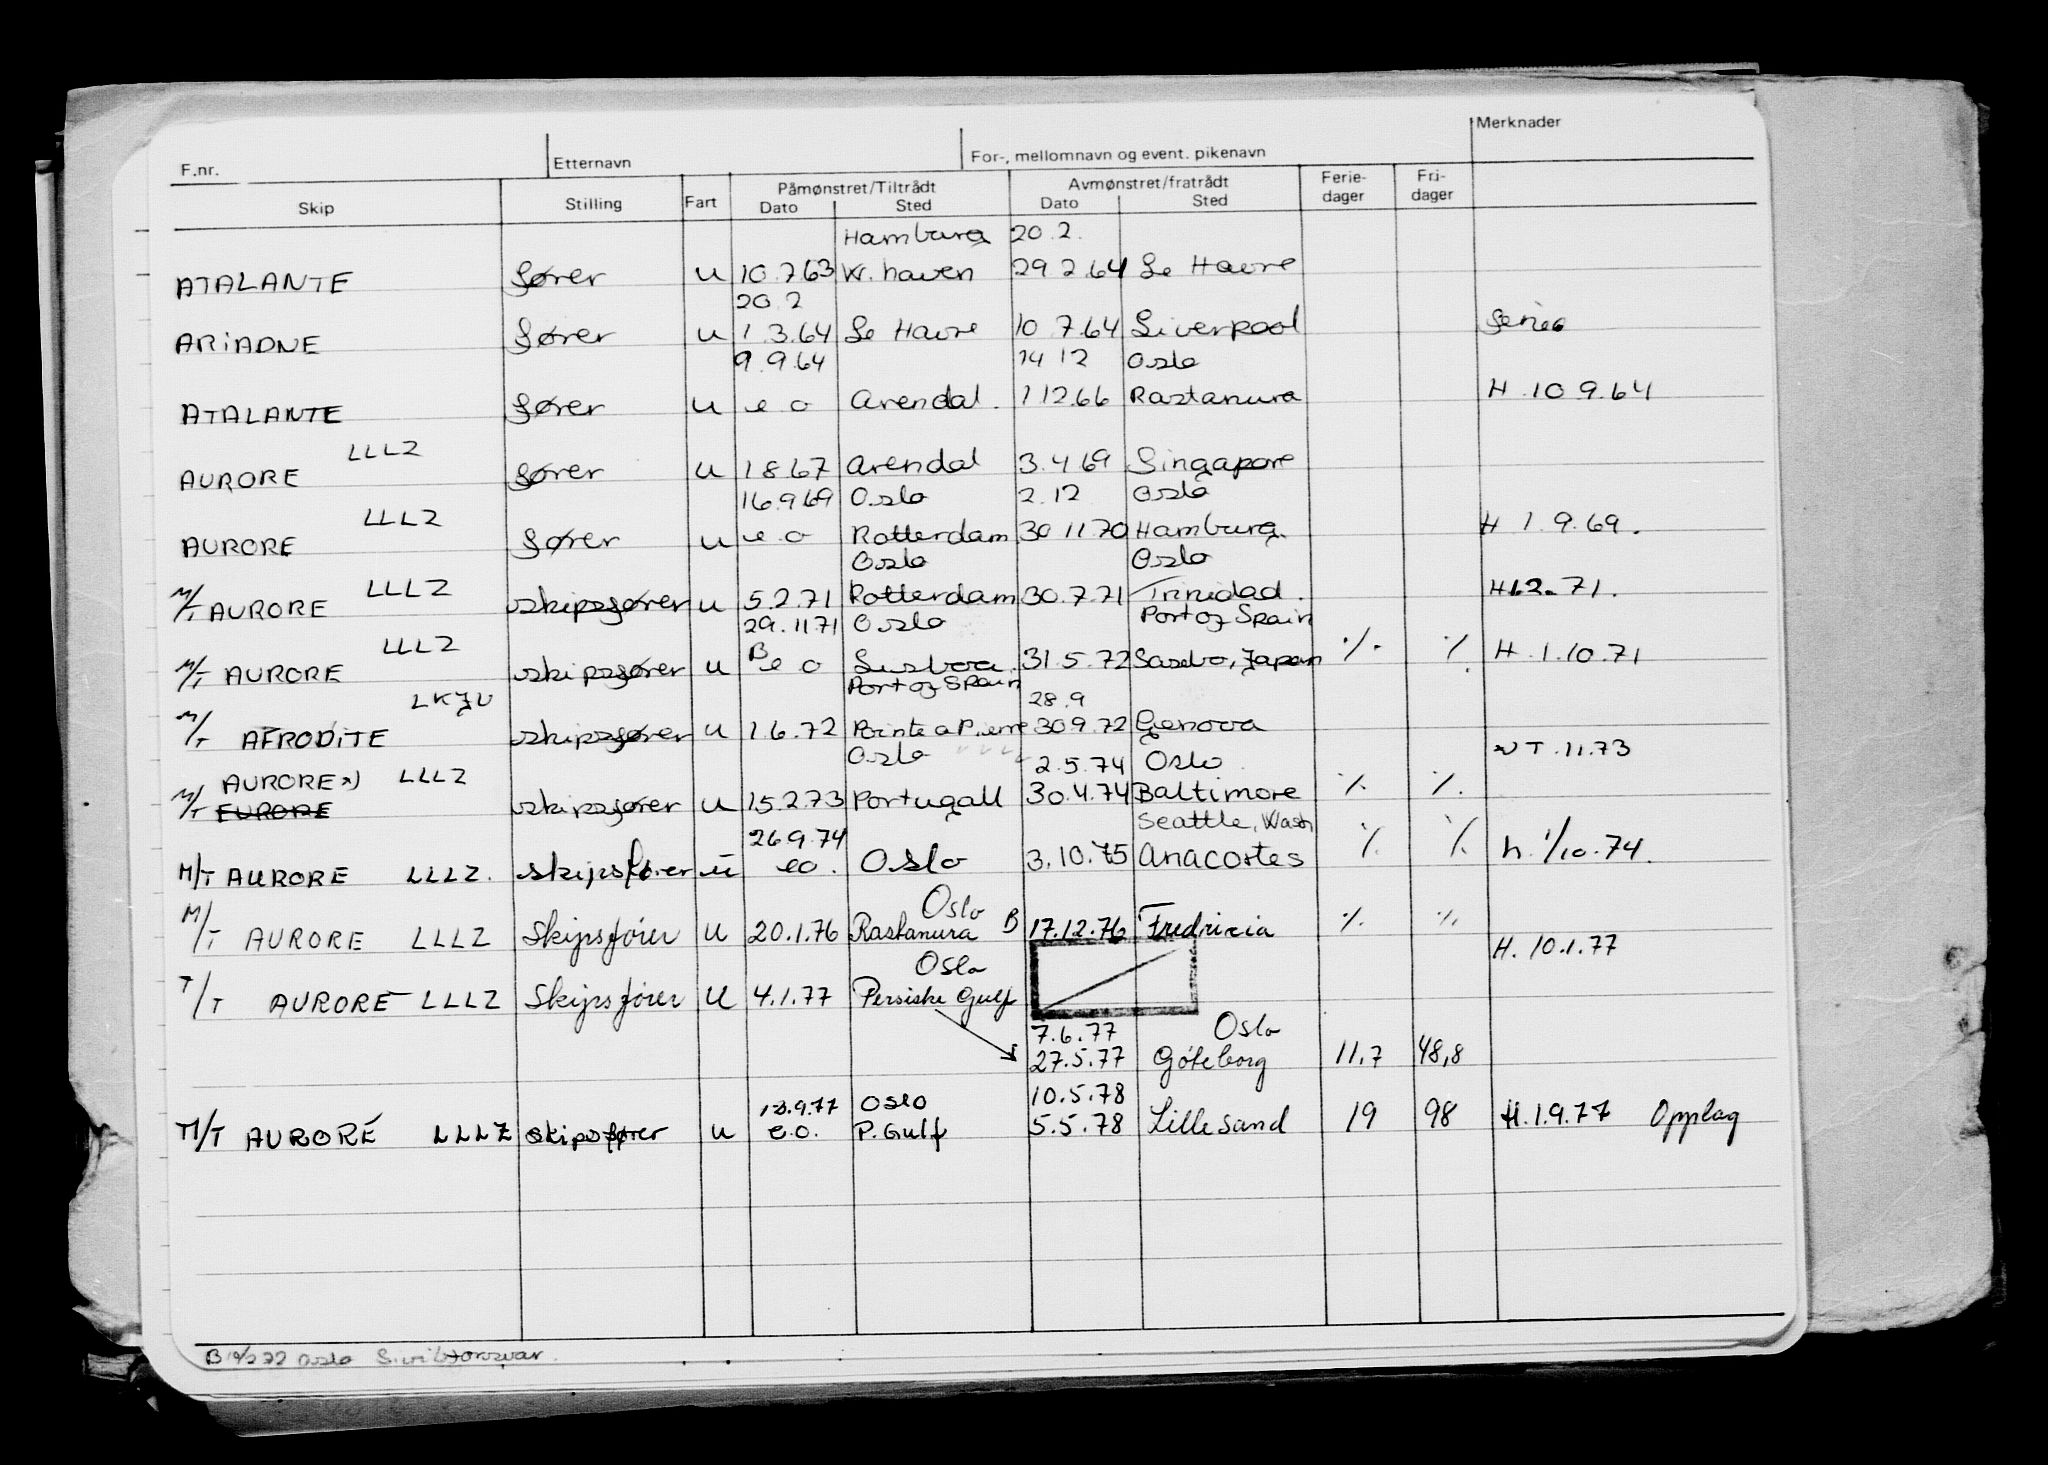 F.nr. Etternavn For-, mellomnavn og event. pikenavn Merknader
Skip Stilling Fart Påmønstret/Tiltrådt Avmønstret/fratrådt Ferie-dager Fri-dager
Dato Sted Dato Sted
Hamburg 20.2.
ATALANTE fører u 10.7.63 W.haven 29.2.64 Le Havre
20.2
ARIADNE fører u 1.3.64 Le Havre 10.7.64 Liverpool ferie
9.9.64 14 12 Oslo
ATALANTE fører u e o Arendal. 1 12.66 Rastanura H.10 9.64
LLLZ
AURORE fører u 1 8.67 Arendal 3.4 69 Singapore
16.9 69 Oslo 2.12 Oslo
LLLZ
AURORE fører u e o Rotterdam 30 11.70 Hamburg. H 1.9.69.
Oslo Oslo
M/T AURORE LLLZ skipsfører u 5.2.71 Rotterdam 30.7.71 Trinidad. H1.2.71.
29.11 71 Oslo Port of Spain
LLLZ B
M/T AURORE skipsfører u e o Lisboa. 31.5.72 Sasebo, Japan ·/· ·/. H.1.10.71
LKJU Port of Spain 28.9
M/T AFRODITE skipsfører u 1.6.72 Pointe a Pierre 30.9.72 Genova
Oslo 2.5.74 Oslo. x) T.11.73
AURORE x) LLLZ
M/T EURORE skipsfører u 15.2.73 Portugall 30.4.74 Baltimore ·/. ·/.
26.9.74 Seattle, Wash
M/T AURORE LLLZ. skipsfører u eo. Oslo 3.10.75 Anacortes ·/. ·/. h. 1/10.74.
Oslo
M/T AURORE LLLZ Skipsfører u 20.1.76 Rastanura B 17.12.76 Fredricia ·/. ·/.
Oslo H. 10.1.77
T/T AURORE LLLZ Skipsfører u 4.1.77 Persiske Gulf
7.6.77 Oslo
27.5.77 Göteborg 11,7 48,8
13.9.77 Oslo 10.5.78
M/T AURORE LLLZ skipsfører u e.o. P.Gulf 5.5.78 Lillesand 19 98 H.1.9.77 Opplag
B 72 Oslo Sivilforsvar.